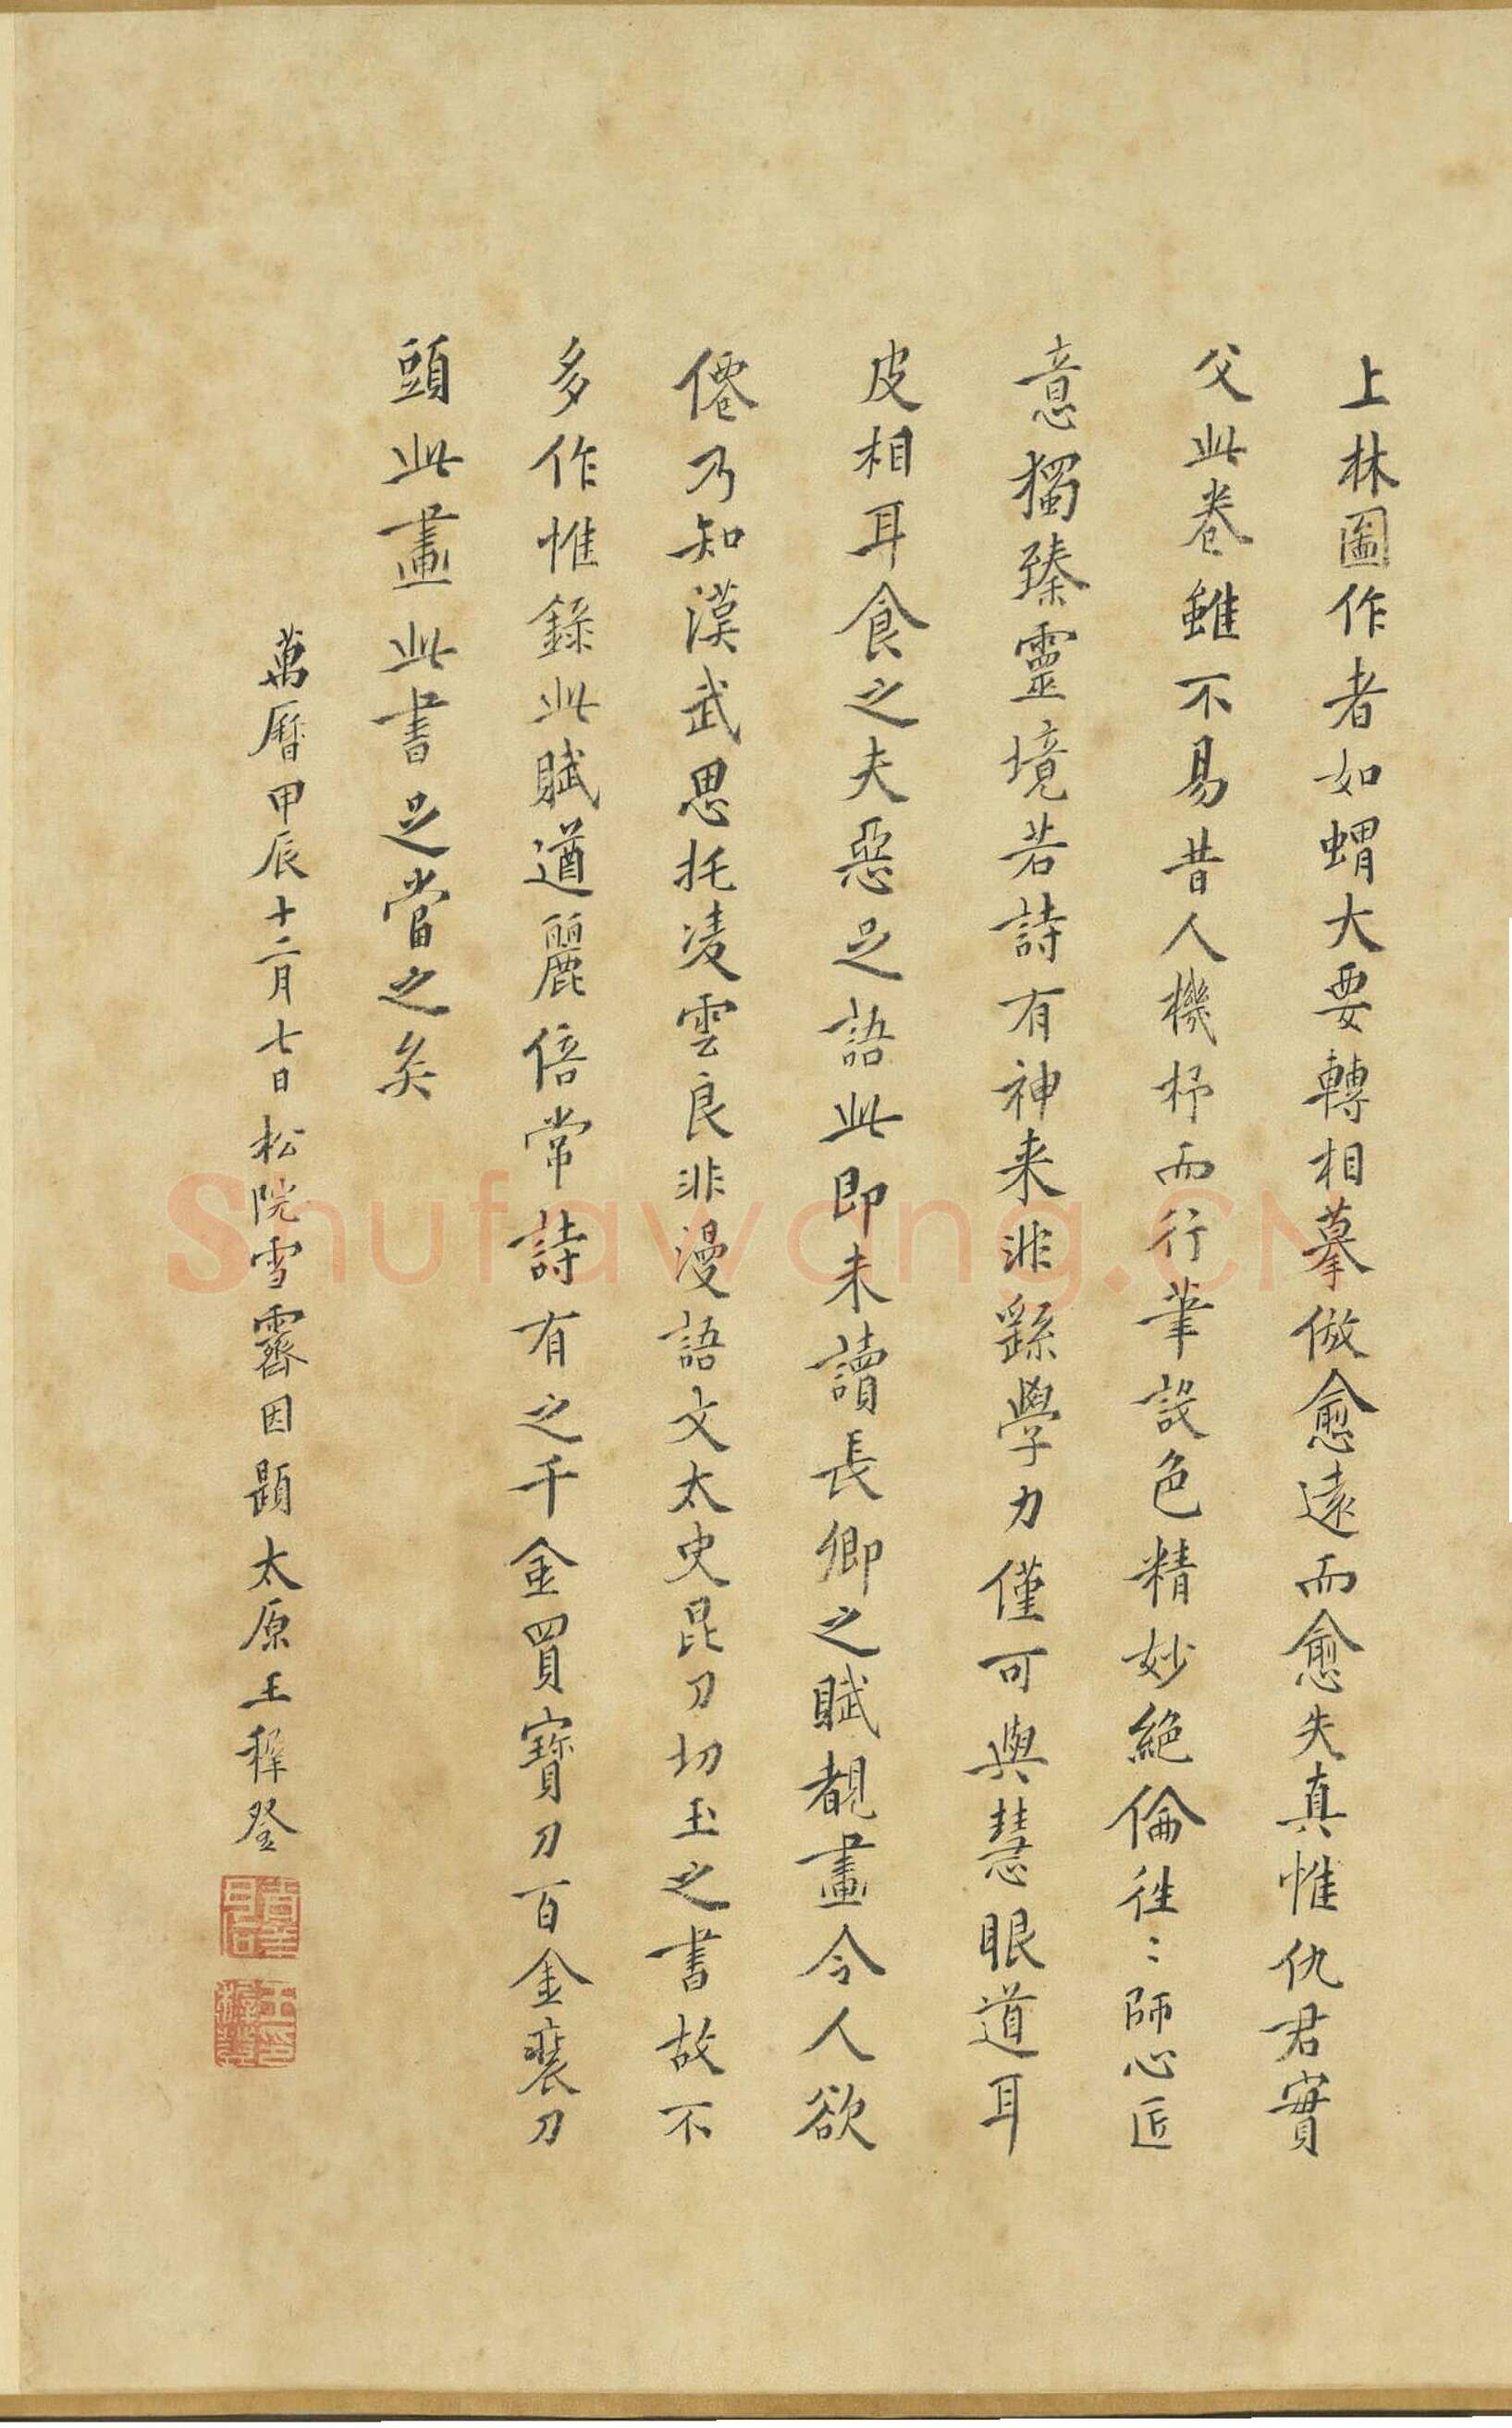 上林圖作者如蝟大要轉相摹倣愈遠而愈失真惟仇君實
父此卷雖不易昔人機杼而行筆設色精妙絕倫徃〻師心匠
意獨臻靈境若詩有神来非繇學力僅可與慧眼道耳
皮相耳食之夫惡足語此即未讀長卿之賦覩畫令人欲
僊乃知漢武思托凌雲良非漫語文太史昆刀切玉之書故不
多作惟錄此賦遒麗倍常詩有之千金買寶刀百金裝刀
頭此畫此書足當之矣
萬曆甲辰十二月七日松院雪霽因題太原王穉登
Shufawang.CN